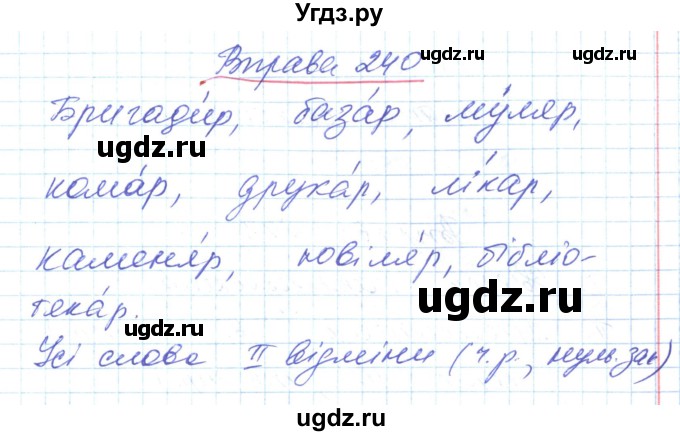 Угдз.ру
Вправа 240
ugdz.ru ugdz.ru
Бригади́р, база́р, му́ляр,
ugdz.ru ugdz.ru
кома́р, друка́р, лі́кар,
каменя́р, ювіля́р, бібліо-
ugdz.ru
тека́р.
ugdz.ru
Усі слова II відміни (ч.р., нуль.зак)
ugdz.ru